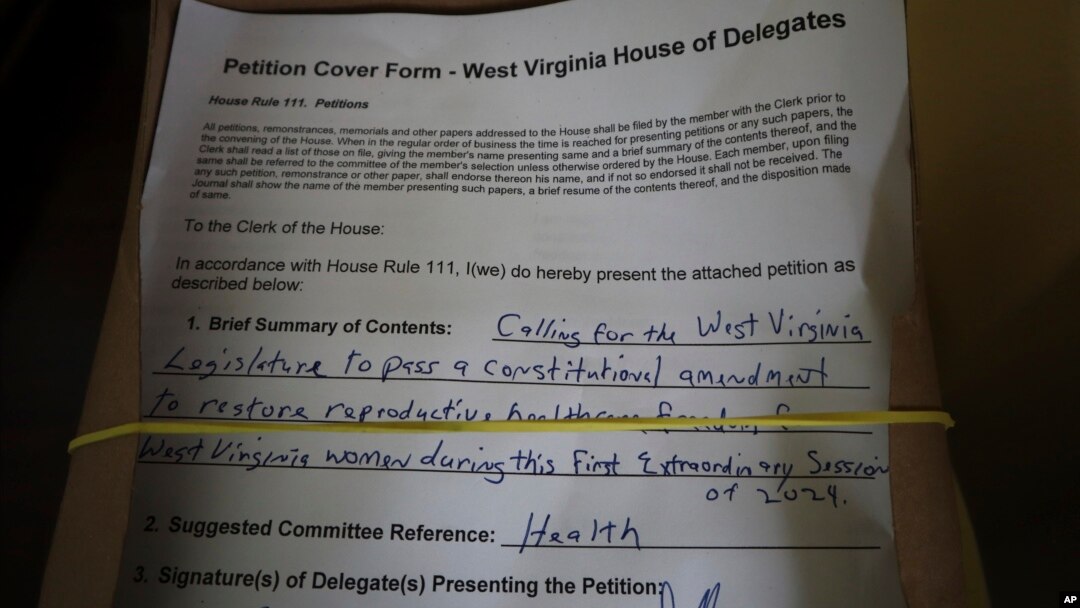 Petition Cover Form - West Virginia House of Delegates
House Rule 111. Petitions
All petitions, remonstrances, memorials and other papers addressed to the House shall be filed by the member with the Clerk prior to
the convening of the House. When in the regular order of business the time is reached for presenting petitions or any such papers, the
Clerk shall read a list of those on file, giving the member's name presenting same and a brief summary of the contents thereof, and the
same shall be referred to the committee of the member's selection unless otherwise ordered by the House. Each member, upon filing
any such petition, remonstrance or other paper, shall endorse thereon his name, and if not so endorsed it shall not be received. The
Journal shall show the name of the member presenting such papers, a brief resume of the contents thereof, and the disposition made
of same.
To the Clerk of the House:
In accordance with House Rule 111, I(we) do hereby present the attached petition as
described below:
1. Brief Summary of Contents: Calling for the West Virginia
Legislature to pass a constitutional amendment
to restore reproductive healthcare
West Virginia women during this First Extraordinary Session
of 2024.
2. Suggested Committee Reference: Health
3. Signature(s) of Delegate(s) Presenting the Petition:
AP